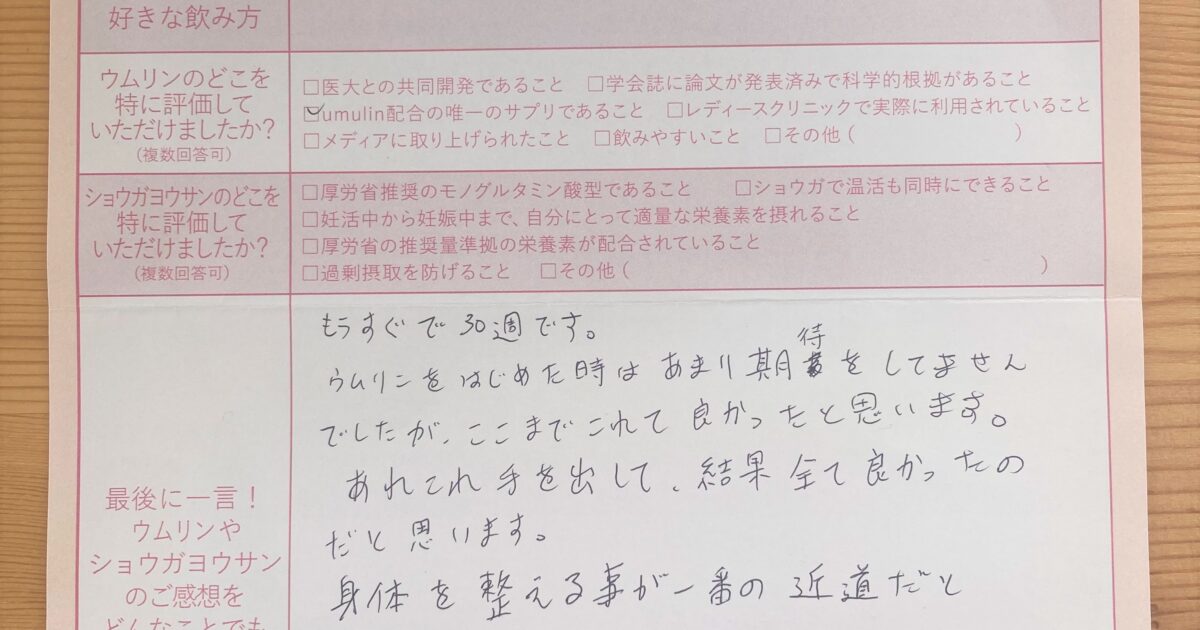 好きな飲み方
ウムリンのどこを
特に評価して
いただけましたか?
(複数回答可)
□医大との共同開発であること □学会誌に論文が発表済みで科学的根拠があること
☑umulin配合の唯一のサプリであること □レディースクリニックで実際に利用されていること
□メディアに取り上げられたこと □飲みやすいこと □その他( )
ショウガヨウサンのどこを
特に評価して
いただけましたか?
(複数回答可)
□厚労省推奨のモノグルタミン酸型であること □ショウガで温活も同時にできること
□妊活中から妊娠中まで、自分にとって適量な栄養素を摂れること
□厚労省の推奨量準拠の栄養素が配合されていること
□過剰摂取を防げること □その他( )
最後に一言!
ウムリンや
ショウガヨウサン
のご感想を
どんなことでも
もうすぐで30週です。
ウムリンをはじめた時はあまり期待をしてません
でしたが、ここまでこれて良かったと思います。
あれこれ手を出して、結果全て良かったの
だと思います。
身体を整える事が一番の近道だと